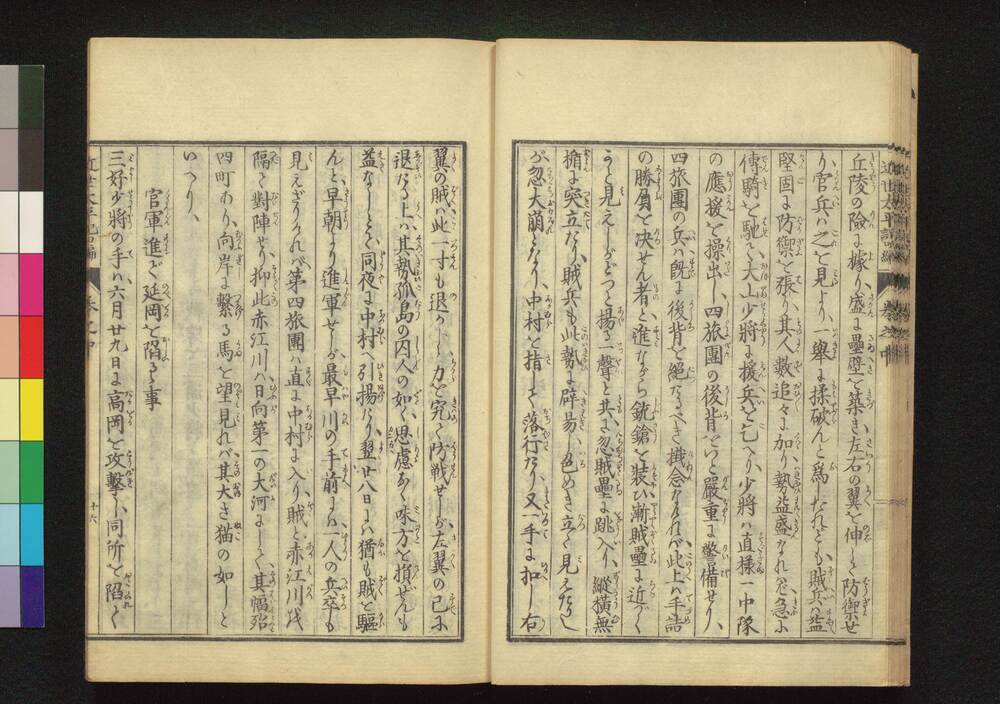 丘陵の險に據り、盛に壘壁を築き左右の翼を伸して防禦せ
り、官兵ハ之を見より、一擧に揉破んと爲したれども賊兵ハ益
堅固に防禦を張り其人數追々に加り、勢益盛なれバ急に
傳騎を馳て大山少將に援兵を乞へり、少將ハ直様一中隊
の應援を操出し、四旅團の後背をいと嚴重に警備せり、
四旅團の兵ハ既に後背を絶たるべき掛念なけれバ此上ハ手詰
の勝負を决せん者と進ながら銃鎗を装ひ漸賊壘に近づく
かと見えしがどつと揚る一聲と共に忽賊壘に跳入り、縱横無
頻に突立たり、賊兵も此勢に辟易し、色めき立て見えたりし
が、忽大崩となり、中村を指して落行たり、又一手に扣し右
翼の賊ハ此一寸も退かじと力を究て防戰せしが、左翼の已に
退たる上ハ、其勢孤島の囚人の如く、思慮なく味方を損ぜんも
益なしとて、同夜に中村へ引揚たり、翌廿八日にハ猶も賊を驅
んと、早朝より進軍せしが、最早川の手前にハ、一人の兵卒も
見えざりけれバ、第四旅團ハ直に中村に入り、賊と赤江川を
隔て對陣せり、抑此赤江川ハ日向第一の大河にして、其幅殆
四町あり、向岸に繋る馬を望見れバ其大さ猫の如しと
いへり、
官軍進で延岡を陷る事
三好少將の手ハ六月廿九日に高岡を攻撃し、同所を陷れて
近世太平記
十六